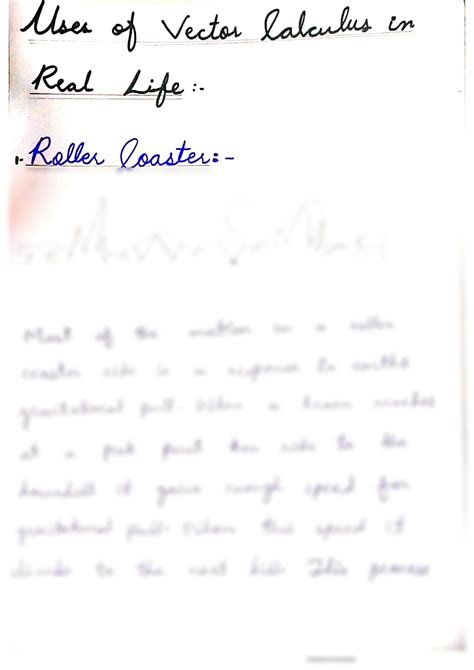 Uses of Vector Calculus in
Real Life :-
1. Roller Coaster:-
Most of the motion in a roller
coaster ride is a response to earths
gravitational pull. When a train reaches
at a pick point the ride to the
downhill it gains enough speed for
gravitational pull. When this speed it
climbs to the next hill. This process